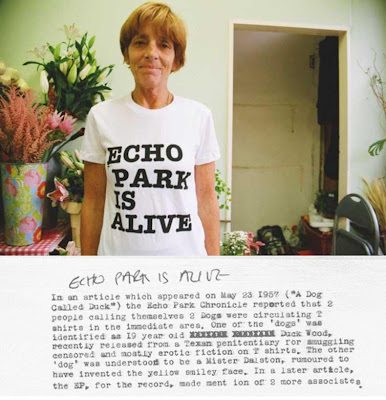 ECHO
PARK
IS
ALIVE
ECHO PARK IS ALIVE
In an article which appeared on May 23 1957 ("A Dog
Called Duck") the Echo Park Chronicle reported that 2
people calling themselves 2 Dogs were circulating T
shirts in the immediate area. One of the 'dogs' was
identified as 19 year old Duck Wood,
recently released from a Texan penitentiary for smuggling
censored and mostly erotic fiction on T shirts. The other
'dog' was understood to be a Mister Dalston, rumoured to
have invented the yellow smiley face. In a later article,
the EP, for the record, made ment ion of 2 more associates